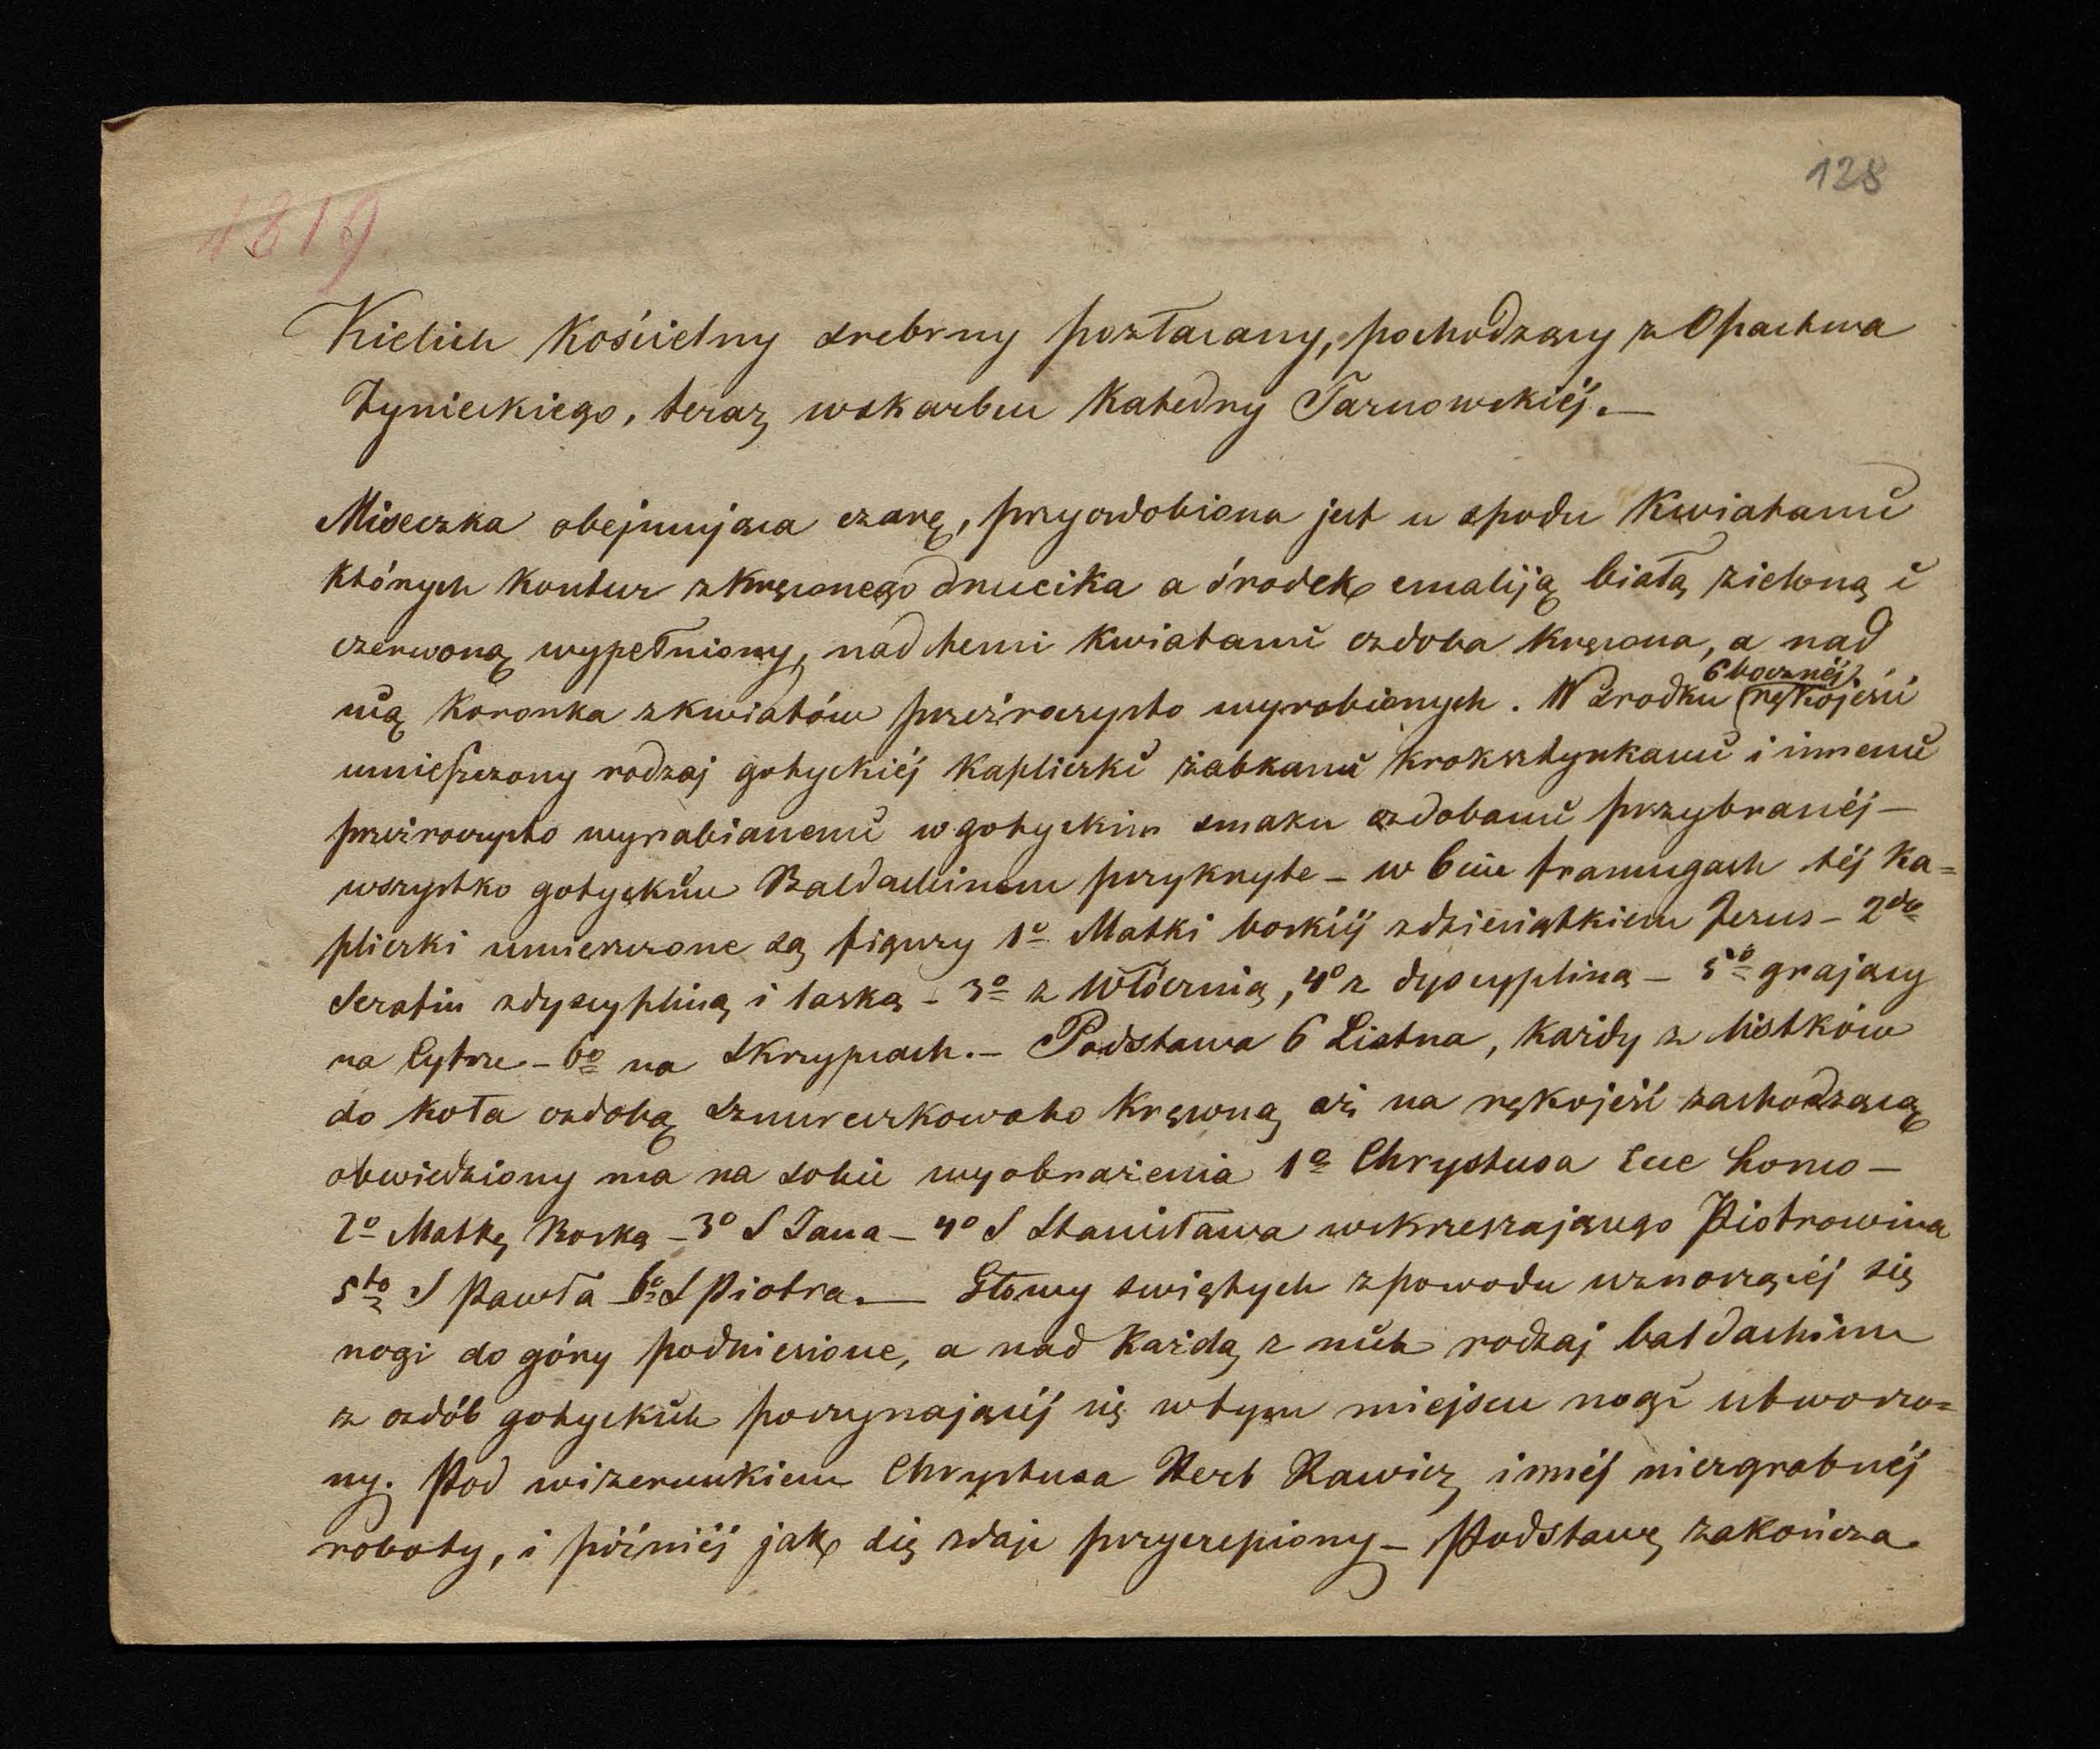 128
1819.
Kielich Kościelny srebrny pozłacany, pochodzący z Opactwa
Tynieckiego, teraz w skarbcu Katedry Tarnowskiéj. —
Miseczka obejmująca czarę, przyozdobiona jest u spodu Kwiatami
których Kontur z kręconego drucika a środek emaliją białą zieloną i
czerwoną wypełniony, nad temi kwiatami ozdoba kręcona, a nad
nią Koronka z kwiatów przeźroczysto wyrobionych. W środku 6bocznéj rękojeści
umieszczony rodzaj gotyckiéj Kapliczki żabkami kroksztynkami i innemi
przeźroczysto wyrabianemi w gotyckim smaku ozdobami przybranéj —
wszystko gotyckim Baldachinem przykryte — w 6ciu framugach téj Ka=
pliczki umieszczone są figury 1o Matki boskiéj z dzieciątkiem Jezus — 2do
Serafin z dyscypliną i laską — 3o z Włócznią, 4o z dyscypliną — 5o grający
na Cytrze — 6o na Skrzypcach. — Podstawa 6 Listna, każdy z listków
do koła ozdobą sznureczkowato kręconą aż na rękojeść zachodzącą
obwiedziony ma na sobie wyobrażenia 1o Chrystusa Ecce homo —
2o Matkę Boską — 3o S Jana — 4o S Stanisława wskrzeszającego Piotrowina
5to S Pawła — 6o S Piotra. — Głowy świętych z powodu wznoszącéj się
nogi do góry podniesione, a nad każdą z nich rodzaj baldachimu
z ozdób gotyckich poczynającéj się w tym miejscu nogi utworzo=
ny. Pod wizerunkiem Chrystusa Herb Rawicz, innéj niezgrabnéj
roboty, i późniéj jak się zdaje przyczepiony — Podstawę zakończa